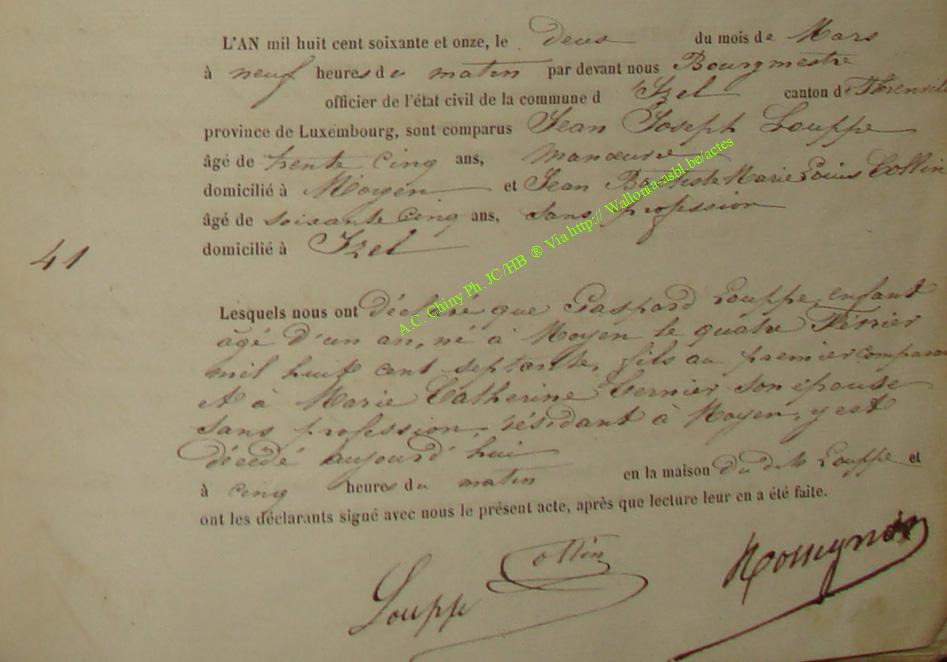 L'AN mil huit cent soixante et onze, le deux du mois de Mars
à neuf heures du matin par devant nous Bourgmestre
officier de l'état civil de la commune d'Izel canton de Florenville
province de Luxembourg, sont comparus Jean Joseph Louppe
âgé de trente cinq ans, manœuvre
domicilié à Moyen et Jean Baptiste Marie Louis Collin
âgé de soixante cinq ans, sans profession
domicilié à Izel
41
Lesquels nous ont déclaré que Gaspard Louppe, enfant
âgé d'un an, né à Moyen le quatre Février
mil huit cent septante, fils au premier comparant
et à Marie Catherine son épouse
sans profession, résidant à Moyen, y est
décédé aujourd'hui
à cinq heures du matin en la maison du dit Louppe et
ont les déclarants signé avec nous le présent acte, après que lecture leur en a été faite.
Collin
Louppe
Rossignon
A.C. Chiny Ph. JC/HB ® Via http:// Wallonia-asbl.be/actes